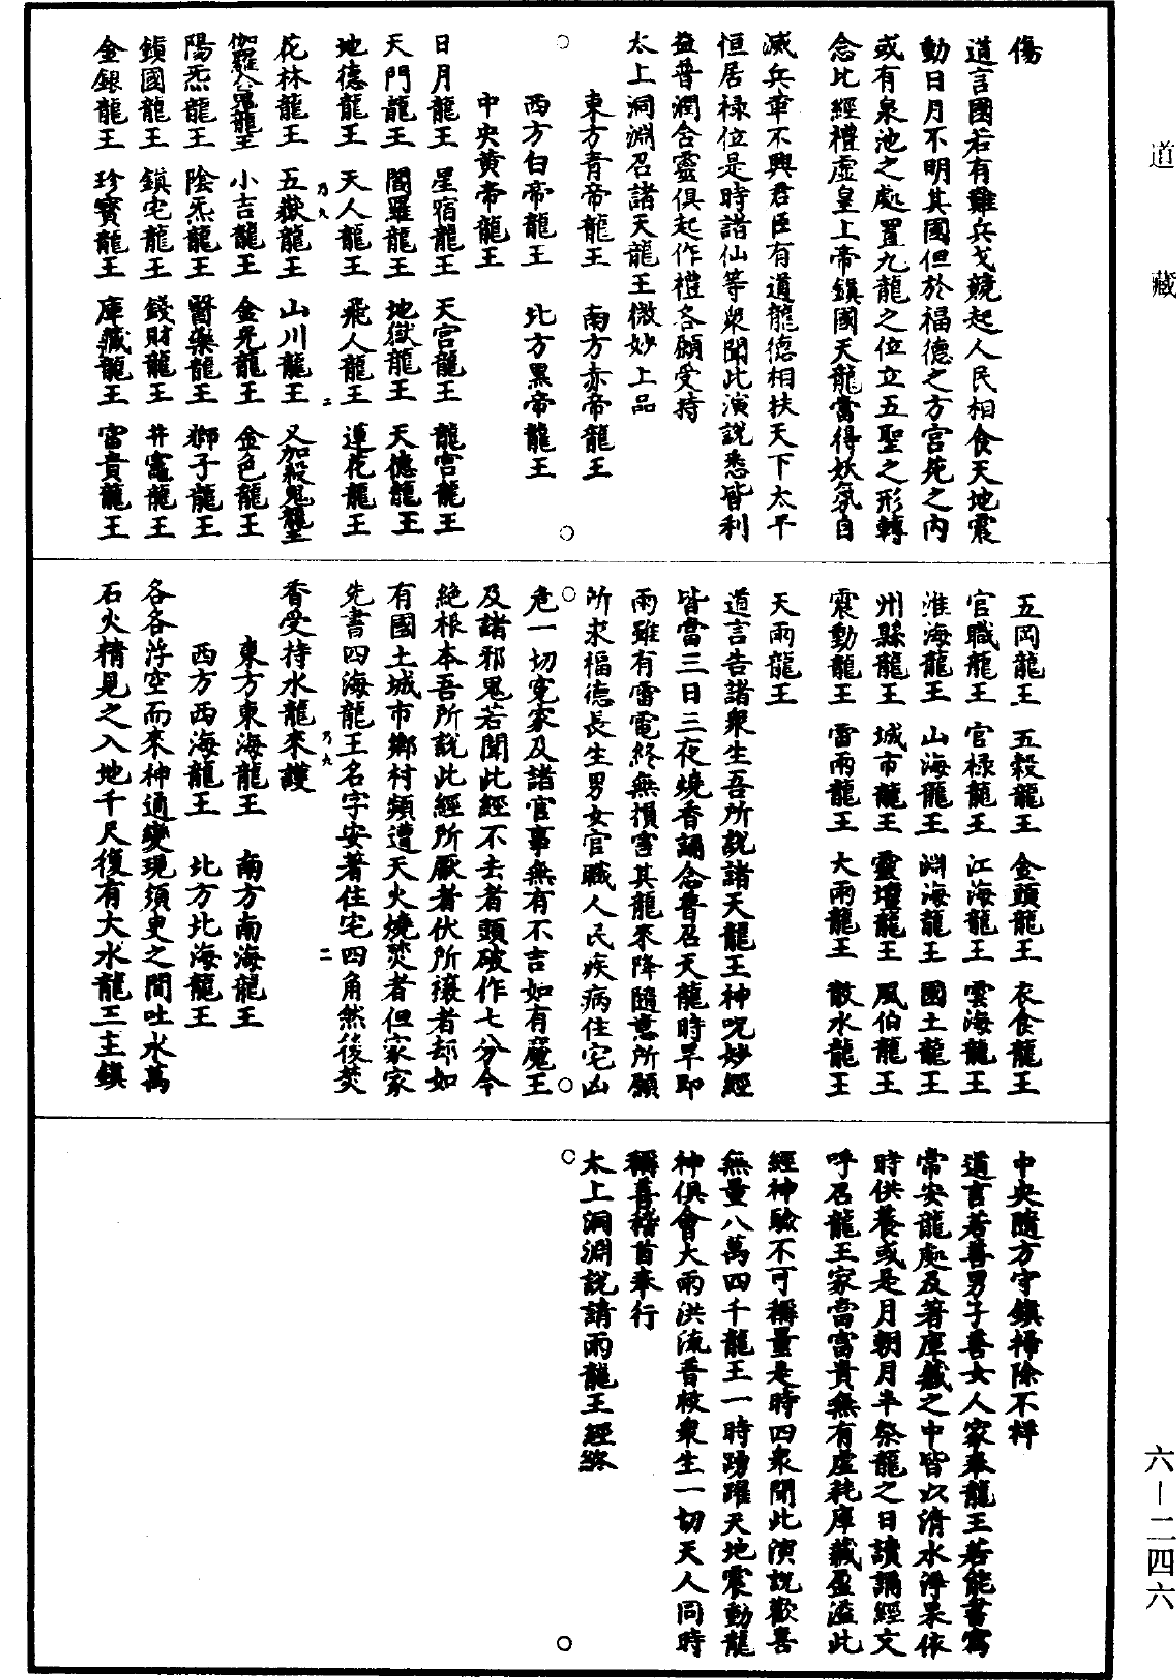 道藏
傷
道言國若有難兵戈競起人民相食天地震
動日月不明其國但於福德之方宮苑之內
或有泉池之處置九龍之位立五聖之形轉
念此經禮虛皇上帝鎮國天龍當得妖氛自
滅兵革不興君臣有道龍德相扶天下太平
恒居祿位是時諸仙等衆聞此演說悉皆利
益普潤含靈俱起作禮各願受持
太上洞淵召諸天龍王微妙上品
東方青帝龍王 南方赤帝龍王
西方白帝龍王 北方黑帝龍王
中央黃帝龍王
日月龍王 星宿龍王 天宮龍王 龍宮龍王
天門龍王 閻羅龍王 地獄龍王 天德龍王
地德龍王 天人龍王 飛人龍王 蓮花龍王
乃九 二
花林龍王 五嶽龍王 山川龍王 又加殺鬼龍王
伽羅龍王 小吉龍王 金光龍王 金色龍王
陽炁龍王 陰炁龍王 醫藥龍王 獅子龍王
鎮國龍王 鎮宅龍王 錢財龍王 井竈龍王
金銀龍王 珍寶龍王 庫藏龍王 富貴龍王
五岡龍王 五穀龍王 金頭龍王 衣食龍王
官職龍王 官祿龍王 江海龍王 雲海龍王
淮海龍王 山海龍王 淵海龍王 國土龍王
州縣龍王 城市龍王 靈壇龍王 風伯龍王
震動龍王 雷雨龍王 大雨龍王 散水龍王
天雨龍王
道言告諸衆生吾所說諸天龍王神呪妙經
皆當三日三夜燒香誦念普召天龍時旱即
雨雖有雷電終無損害其龍來降隨意所願
所求福德長生男女官職人民疾病住宅凶
危一切冤家及諸官事無有不吉如有魔王
及諸邪鬼若聞此經不去者頭破作七分令
絕根本吾所說此經所厭者伏所禳者却如
有國土城市鄉村頻遭天火燒焚者但家家
先書四海龍王名字安著住宅四角然後焚
乃九 二
香受持水龍來護
東方東海龍王 南方南海龍王
西方西海龍王 北方北海龍王
各各浮空而來神通變現須臾之間吐水萬
石火精見之入地千尺復有大水龍王主鎮
中央隨方守鎮掃除不祥
道言若善男子善女人家奉龍王若能書寫
常安龍處及著庫藏之中皆以清水淨果依
時供養或是月朝月半祭龍之日讀誦經文
呼召龍王家當富貴無有虛耗庫藏盈溢此
經神驗不可稱量是時四衆聞此演說歡喜
無量八萬四千龍王一時踴躍天地震動龍
神俱會大雨洪流普救衆生一切天人同時
稱善稽首奉行
太上洞淵說請雨龍王經終
六—二四六